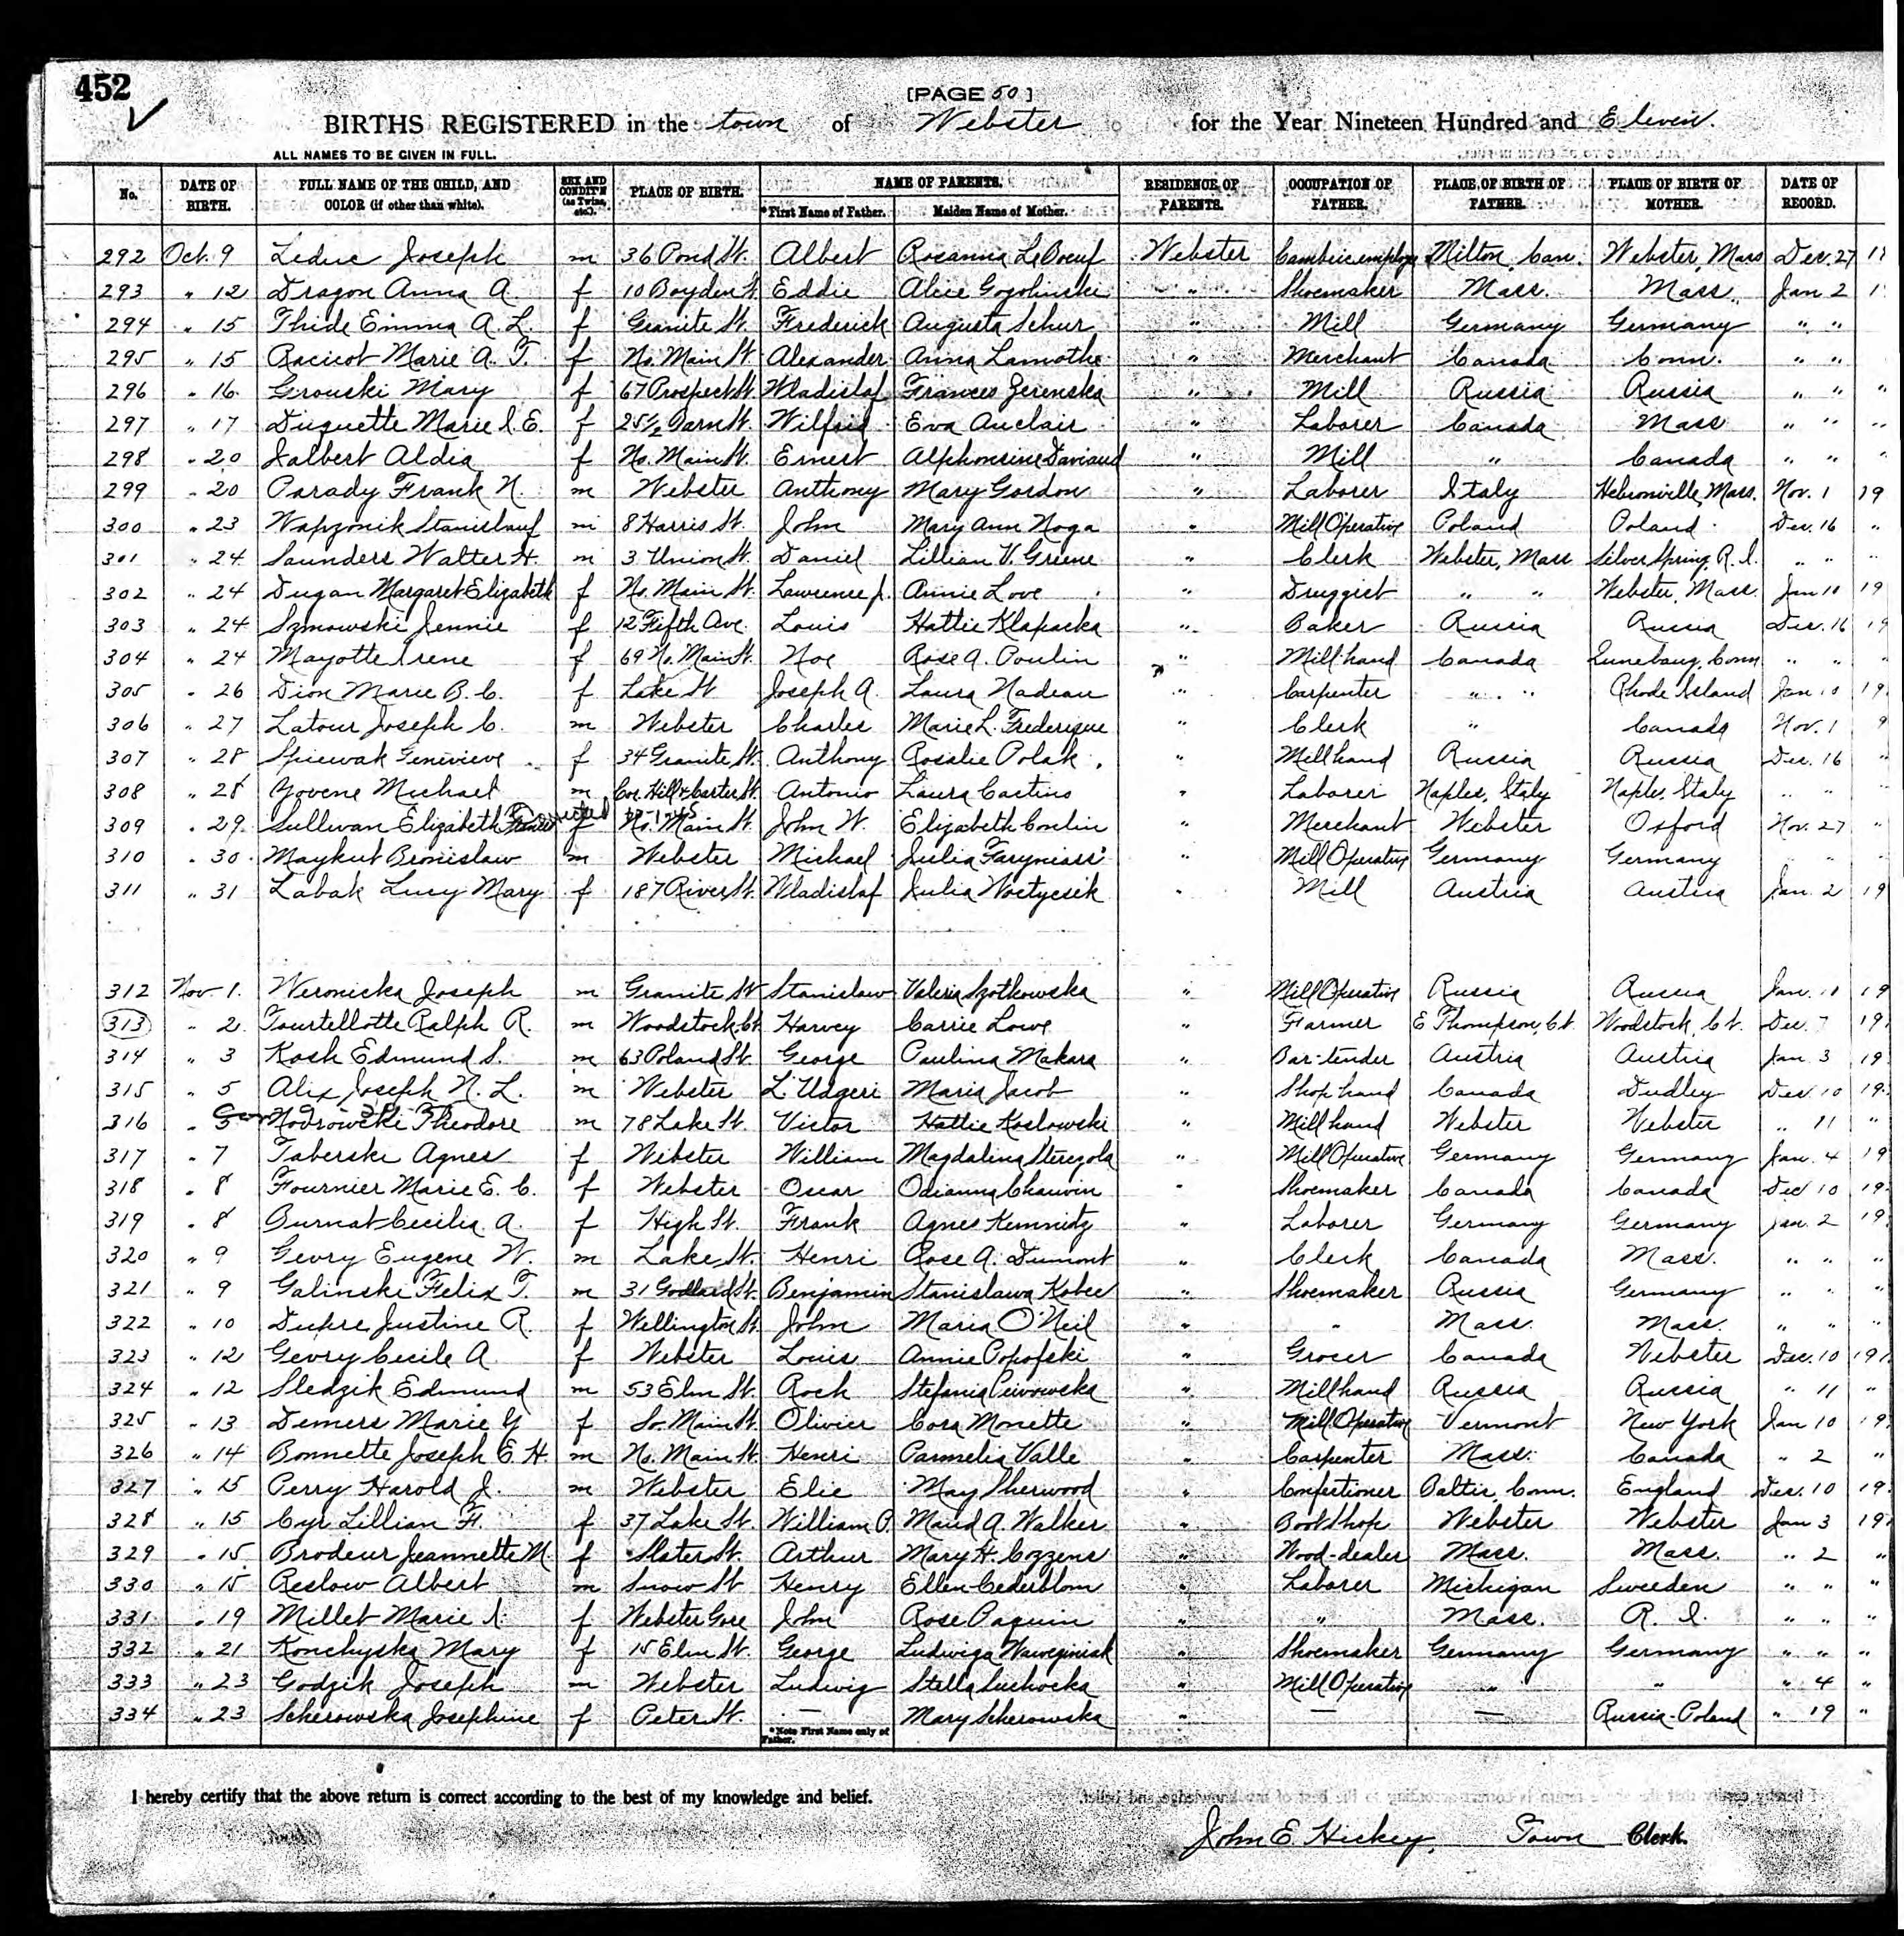 452
[PAGE 50]
BIRTHS REGISTERED in the town of Webster for the Year Nineteen Hundred and Eleven.
ALL NAMES TO BE GIVEN IN FULL.
No. DATE OF BIRTH. FULL NAME OF THE CHILD, AND COLOR (if other than white). SEX AND CONDIT'N (as Twins, etc.). PLACE OF BIRTH. NAME OF PARENTS. *First Name of Father. Maiden Name of Mother. RESIDENCE OF PARENTS. OCCUPATION OF FATHER. PLACE OF BIRTH OF FATHER. PLACE OF BIRTH OF MOTHER. DATE OF RECORD.
292 Oct. 9 Leduc Joseph m 36 Pond St. Albert Rosanna LeBoeuf Webster Milton, Can. Webster, Mass Dec. 27
293 " 12 Dragon Anna A f 10 Boyden St. Eddie Alice Gogolinski " Shoemaker Mass. Mass. Jan 2
294 " 15 Thide Emma A. L. f Granite St. Frederick Augusta Schur " Mill Germany Germany " "
295 " 15 Racicot Marie A. T. f No. Main St. Alexander Anna Lamothe " Merchant Canada Conn. " "
296 " 16 Girouski Mary f 67 Prospect St. Wladislaf Frances Zerenska " Mill Russia Russia " "
297 " 17 Duquette Marie I. E. f 25 1/2 St. Wilfrid Eva Auclair " Laborer Canada Mass " "
298 " 20 Jalbert Aldia f No. Main St. Ernest Alphonsine Daviaud " Mill " Canada " "
299 " 20 Parady Frank N. m Webster Anthony Mary Gordon " Laborer Italy Hebronville, Mass. Nov. 1 19
300 " 23 Wapzonik Stanislauf m 8 Harris St. John Mary Ann Noga " Mill Operative Poland Poland Dec. 16 "
301 " 24 Saunders Walter H. m 3 Union St. Daniel Lillian V. Greene " Clerk Webster, Mass Silver Spring, R. I. " "
302 " 24 Dugan Margaret Elizabeth f No. Main St. Lawrence J. Annie Love " Druggist " " Webster, Mass. Jan 10 19
303 " 24 Szmowski Jennie f 12 Fifth Ave. Louis Hattie Klapacka " Baker Russia Russia Dec. 16 19
304 " 24 Mayotte Irene f 69 No. Main St. Noe Rose A. Poulin " Mill hand Canada Quinebaug, Conn " "
305 " 26 Dion Marie B. C. f Lake St Joseph A. Laura Nadeau " Carpenter " " Rhode Island Jan 10 19
306 " 27 Latour Joseph C. m Webster Charles Marie L. Frederique " Clerk " Canada Nov. 1 9
307 " 28 Spiewak Genevieve f 34 Granite St. Anthony Rosalie Polak " Millhand Russia Russia Dec. 16 "
308 " 28 Yovene Michael m Cor. Hill & Carter St. Antonio Laura Castino " Laborer Naples, Italy Naples, Italy " "
309 " 29 Sullivan Elizabeth Frances f No. Main St. John W. Elizabeth Conlin " Merchant Webster Oxford Nov. 27 "
310 " 30 Maykut Bronislaw m Webster Michael Julia Faryniasz " Mill Operative Germany Germany " "
311 " 31 Labak Lucy Mary f 187 River St. Wladislaf Julia Woctycsik " Mill Austria Austria Jan. 2 19
312 Nov. 1. Weronicka Joseph m Granite St Stanislaw Valeria Szotkowska " Mill Operative Russia Russia Jan. 10 19
313 " 2 Tourtellotte Ralph R. m Woodstock, Ct. Harvey Carrie Lowe " Farmer E Thompson, Ct. Woodstock, Ct. Dec. 7 19
314 " 3 Kosh Edmund S. m 63 Poland St. George Paulina Makara " Bar-tender Austria Austria Jan 3 19
315 " 5 Alix Joseph N. L. m Webster L. Udgeri Maria Jacob " Shop hand Canada Dudley Dec. 10 19
316 " 5 Modrowski Theodore m 78 Lake St. Victor Hattie Koslowski " Millhand Webster Webster " 11 "
317 " 7 Taberski Agnes f Webster William Magdalina Steregola " Mill Operative Germany Germany Jan. 4 19
318 " 8 Fournier Marie E. C. f Webster Oscar Odianna Chauvin " Shoemaker Canada Canada Dec 10 19
319 " 8 Burnat Cecilia A. f High St. Frank Agnes Kemnidz " Laborer Germany Germany Jan. 2 19
320 " 9 Gevry Eugene W. m Lake St. Henri Rose A. Dumont " Clerk Canada Mass. " "
321 " 9 Galinski Felix T. m 31 Goddard St. Benjamin Stanislawa Kobec " Shoemaker Russia Germany " "
322 " 10 Dupre Justine R. f Wellington St. John Maria O'Neil " " Mass. Mass. " "
323 " 12 Gevry Cecile A f Webster Louis Annie Popofski " Grocer Canada Webster Dec. 10 191
324 " 12 Sledzik Edmund m 53 Elm St. Roch Stefania Pivovwska " Millhand Russia Russia " 11 "
325 " 13 Demers Marie Y f So. Main St. Olivier Cora Monette " Mill Operative Vermont New York Jan 10 19
326 " 14 Bonnette Joseph E. H. m No. Main St. Henri Parmelia Valle " Carpenter Mass. Canada " 2 "
327 " 15 Perry Harold J. m Webster Elie May Sherwood " Confectioner Baltic, Conn. England Dec. 10 19
328 " 15 Cyr Lillian F. f 37 Lake St. William P. Maud A. Walker " Bootshop Webster Webster Jan 3 19
329 " 15 Brodeur Jeannette M. f Slater St. Arthur Mary H. Cozzens " Wood-dealer Mass. Mass. " 2 "
330 " 15 Reslow Albert m Snow St Henry Ellen Cederblom " Laborer Michigan Sweeden " " "
331 " 19 Millet Marie I. f Webster Gore John Rose Paquin " " Mass. R. I. " " "
332 " 21 Konchyska Mary f 15 Elm St. George Ludwiga Waweginiak " Shoemaker Germany Germany " " "
333 " 23 Godzik Joseph m Webster Ludwig Stella Suchocka " Mill Operative " " " 4 "
334 " 23 Scherowska Josephine f Peter St. — Mary Scherowska " — — Russia-Poland " 19 "
*Note First Name only of Father.
I hereby certify that the above return is correct according to the best of my knowledge and belief.
John E. Hickey, Town Clerk.